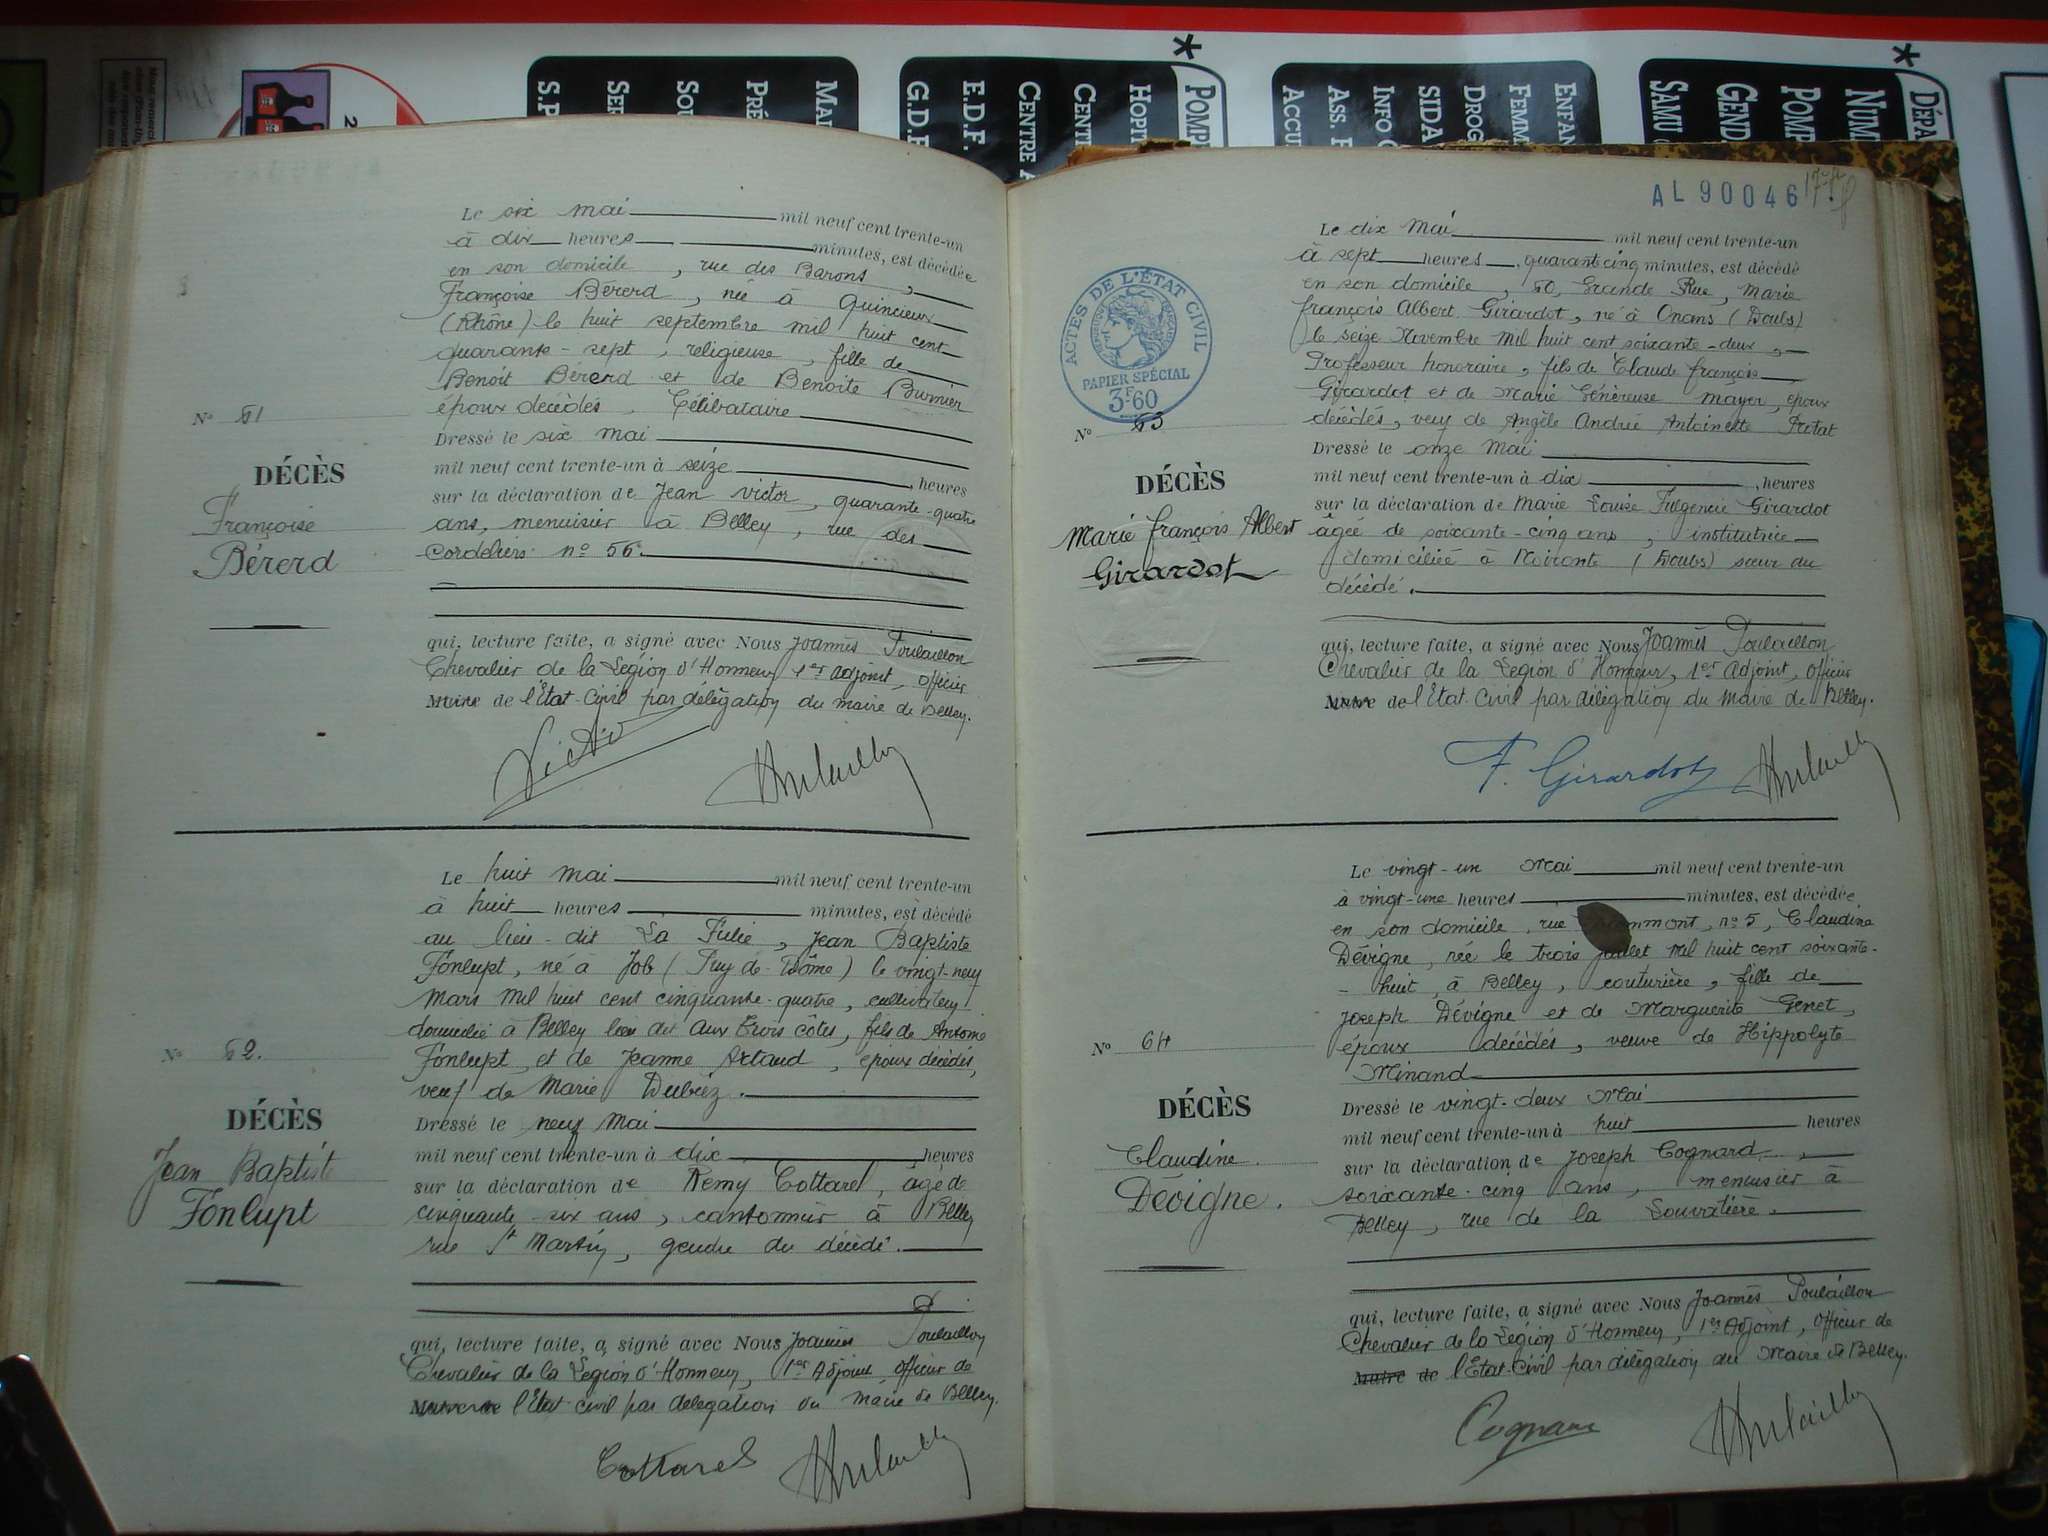 S.P
SER
SOU
PRÉ
MAI
G.D.F
E.D.F.
CENTRE A
CENTR
HOPIT
* POMP
ACCU
ASS. F
INFO
SIDA
DROG
FEMM
ENFAN
SAMU
GEND
POMP
NUM
* DÉPA
Le six mai mil neuf cent trente-un
à dix heures minutes, est décédée
en son domicile, rue des Barons,
Françoise Bérerd, née à Quincieux
(Rhône) le huit septembre mil huit cent
quarante-sept, religieuse, fille de
Benoit Bererd et de Benoite Burnier
époux décédés. Célibataire
Nº 61
Dressé le six mai
DÉCÈS
mil neuf cent trente-un à seize heures
sur la déclaration de Jean Victor, quarante-quatre
Françoise
ans, menuisier à Belley, rue des
Bérerd
Cordeliers nº 56.
qui, lecture faite, a signé avec Nous Joannès Poulaillon
Chevalier de la Légion d'Honneur 1er Adjoint, Officier
Maire de l'Etat-Civil par délégation du maire de Belley.
Victor
Poulaillon
Le huit mai mil neuf cent trente-un
à huit heures minutes, est décédé
au lieu-dit La Fulie, Jean Baptiste
Fonlupt, né à Job (Puy-de-Dôme) le vingt-neuf
mars mil huit cent cinquante-quatre, cultivateur
domicilié à Belley lieu dit aux trois côtes, fils de Antoine
Nº 62.
Fonlupt, et de Jeanne Artaud, époux décédés,
veuf de Marie
DÉCÈS
Dressé le neuf mai
Jean Baptiste
mil neuf cent trente-un à dix heures
Fonlupt
sur la déclaration de Remy Cottarel, âgé de
cinquante-six ans, cantonnier à Belley
rue St Martin, gendre du décédé.
qui, lecture faite, a signé avec Nous Joannès Poulaillon
Chevalier de la Légion d'Honneur, 1er Adjoint, Officier de
Maire de l'Etat-civil par délégation du maire de Belley.
Cottarel
Poulaillon
AL 90046
Le dix Mai mil neuf cent trente-un
à sept heures, quarante cinq minutes, est décédé
en son domicile, 50, Grande Rue, Marie
François Albert Girardot, né à Onans (Doubs)
le seize Novembre mil huit cent soixante-deux,
Professeur honoraire, fils de Claude François
Girardot et de Marie Généreuse Mayer, époux
décédés, veuf de Angèle Andrée Antoinette Pretat
ACTES DE L'ÉTAT CIVIL
PAPIER SPÉCIAL
3F60
Nº 63
Dressé le onze Mai
DÉCÈS
mil neuf cent trente-un à dix heures
Marie François Albert
Girardot
sur la déclaration de Marie Louise Fulgencie Girardot
âgée de soixante-cinq ans, institutrice
domiciliée à Noironte (Doubs) sœur du
décédé.
qui, lecture faite, a signé avec Nous Joannès Poulaillon
Chevalier de la Légion d'Honneur, 1er Adjoint, Officier
Maire de l'Etat-Civil par délégation du Maire de Belley.
F. Girardot
Poulaillon
Le vingt-un Mai mil neuf cent trente-un
à vingt-une heures minutes, est décédée
en son domicile, rue nº 5, Claudine
Dévigne, née le trois juillet mil huit cent soixante-
-huit, à Belley, couturière, fille de
Joseph Dévigne et de Marguerite Genet,
Nº 64
époux décédés, veuve de Hippolyte
Minand
DÉCÈS
Dressé le vingt-deux Mai
mil neuf cent trente-un à huit heures
Claudine
Dévigne.
sur la déclaration de Joseph Cognard,
soixante-cinq ans, menuisier à
Belley, rue de la Louvatière.
qui, lecture faite, a signé avec Nous Joannès Poulaillon
Chevalier de la Légion d'Honneur, 1er Adjoint, Officier de
Maire de l'Etat-Civil par délégation du Maire de Belley.
Cognard
Poulaillon